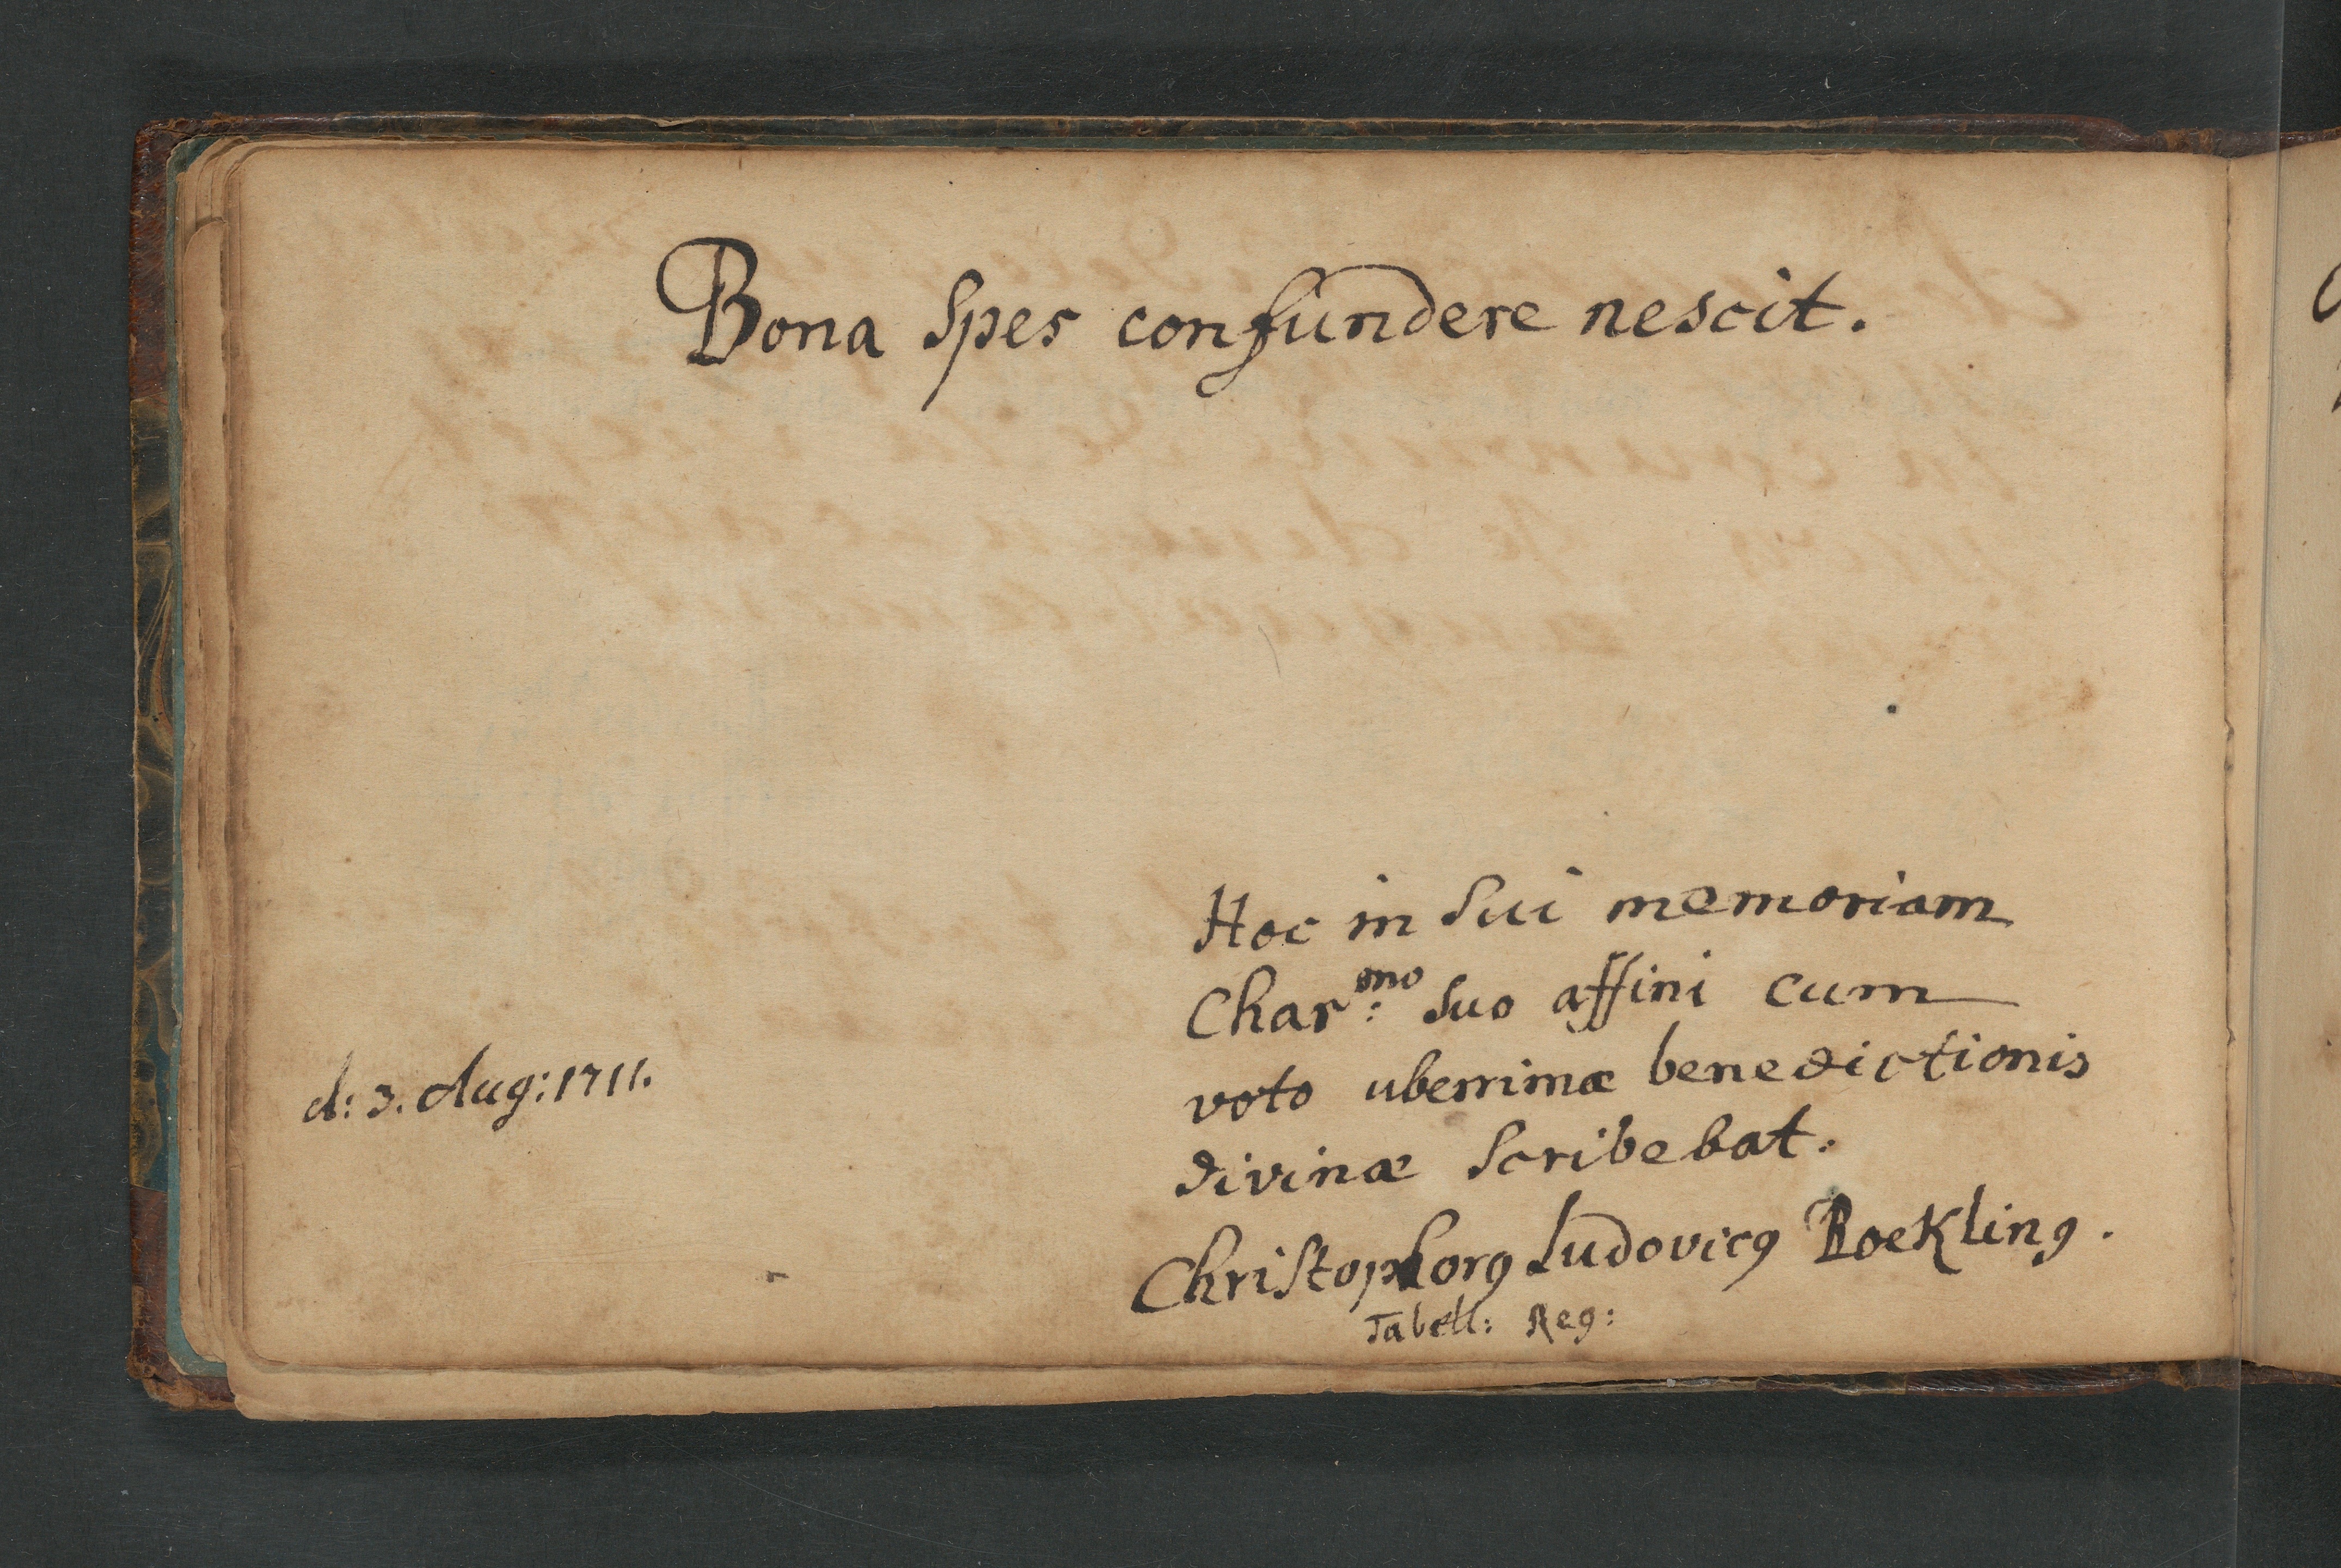 Bona Spes confundere nescit.
Hoc in Sui memoriam
Char:mo Suo affini cum
voto uberrimæ benedictionis
divinæ Scribebat.
d: 3. Aug: 1711.
Christophorꝰ Ludovicꝰ Roekling.
Tabell: Reg: